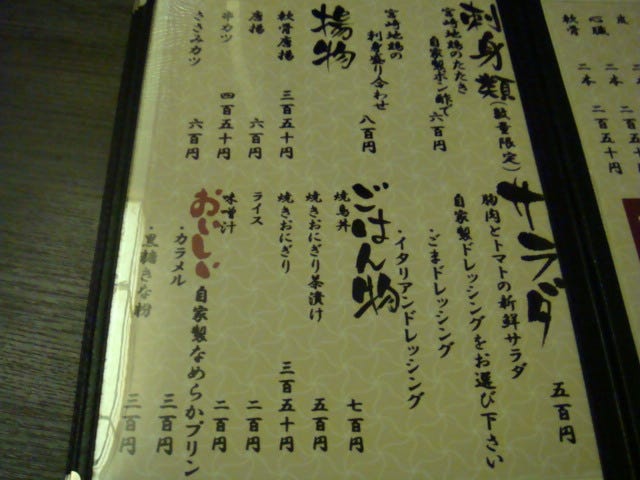 皮
心臓
軟骨
二本
二本 二百五十円
二百五十円
刺身類(数量限定)
宮崎地鶏のたたき
自家製ポン酢で 六百円
宮崎地鶏の
刺身盛り合わせ 八百円
揚物
軟骨唐揚 三百五十円
唐揚 六百円
串カツ 四百五十円
ささみカツ 六百円
サラダ
胸肉とトマトの新鮮サラダ 五百円
自家製ドレッシングをお選び下さい
・ごまドレッシング
・イタリアンドレッシング
ごはん物
焼鳥丼 七百円
焼きおにぎり茶漬け 五百円
焼きおにぎり 三百五十円
ライス 二百円
味噌汁 二百円
おいしい自家製なめらかプリン
・カラメル 三百円
・黒糖きな粉 三百円